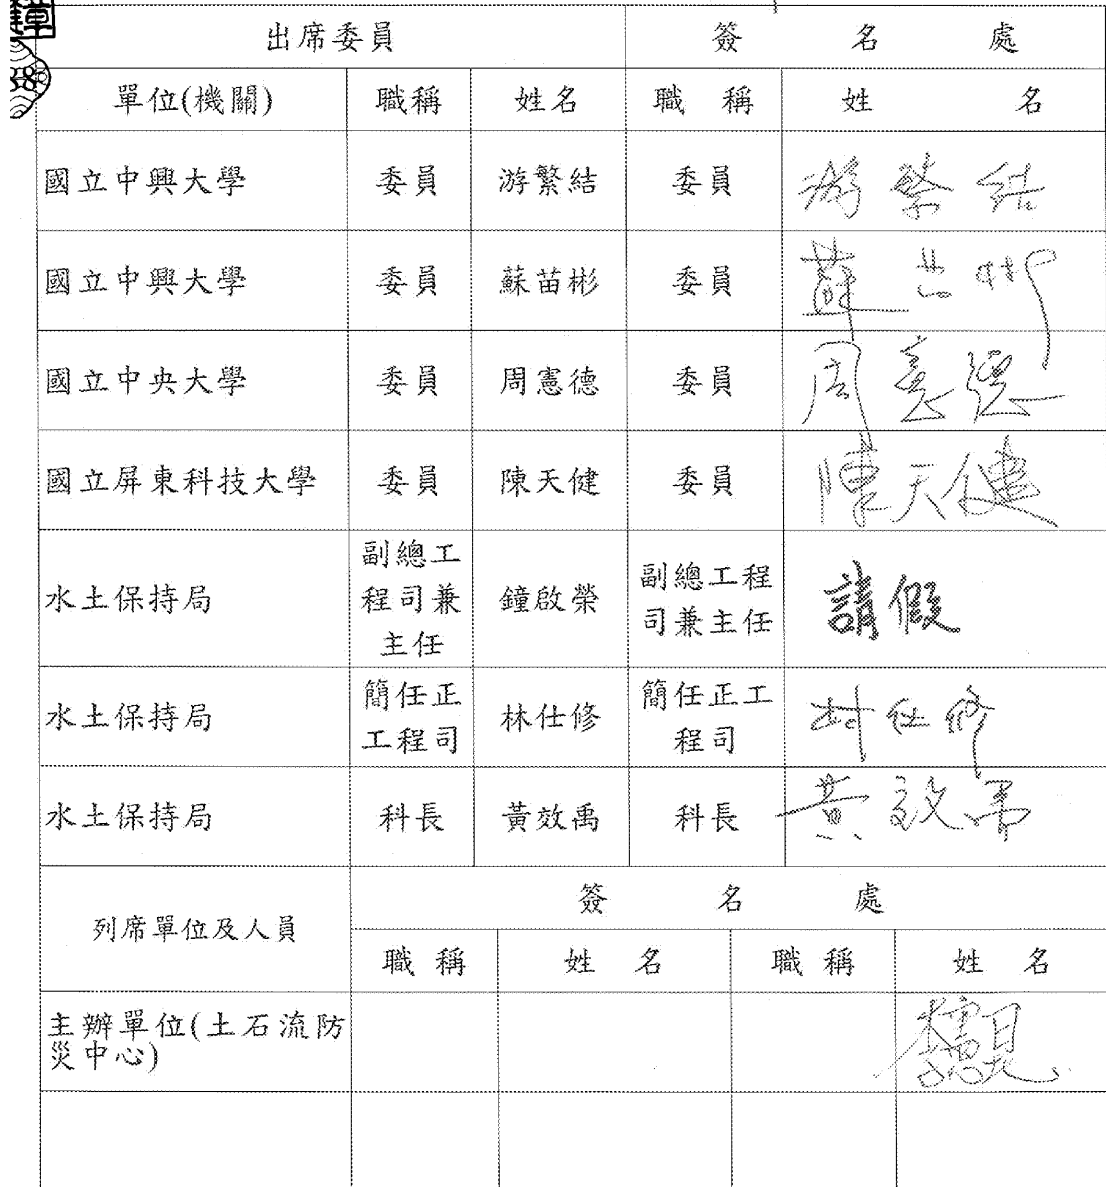 章
出席委員 簽名處
單位(機關) 職稱 姓名 職稱 姓名
國立中興大學 委員 游繁結 委員 游繁結
國立中興大學 委員 蘇苗彬 委員 蘇苗彬
國立中央大學 委員 周憲德 委員 周憲德
國立屏東科技大學 委員 陳天健 委員 陳天健
水土保持局 副總工程司兼主任 鐘啟榮 副總工程司兼主任 請假
水土保持局 簡任正工程司 林仕修 簡任正工程司 林仕修
水土保持局 科長 黃效禹 科長 黃效禹
列席單位及人員 簽名處
職稱 姓名 職稱 姓名
主辦單位(土石流防
災中心)